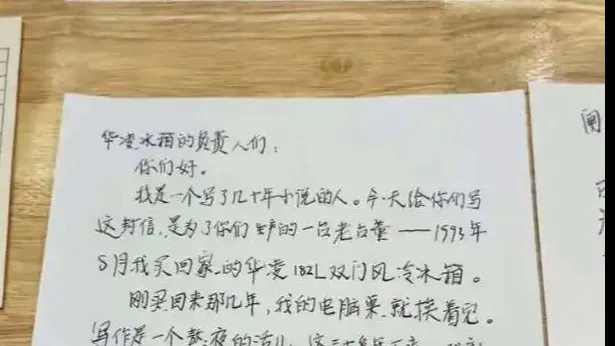 华凌冰箱的负责人们：
你们好。
我是一个写了几十年小说的人。今天给你们写
这封信，是为了你们生产的一台老古董——1993年
5月我买回家的华凌182L双门风冷冰箱。
刚买回来那几年，我的电脑桌就挨着它。
写作是一个熬夜的活儿，这三十多年下来，
闻